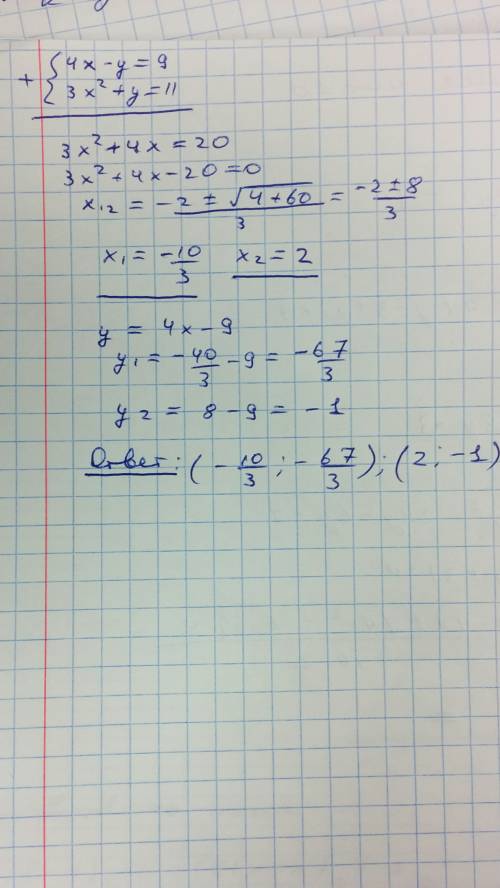 + { 4x - y = 9
3x² + y = 11
3x² + 4x = 20
3x² + 4x - 20 = 0
x₁₂ = -2 ± √4+60 / 3 = -2 ± 8 / 3
x₁ = -10/3 x₂ = 2
y = 4x - 9
y₁ = -40/3 - 9 = -67/3
y₂ = 8 - 9 = -1
Ответ: (-10/3; -67/3); (2; -1)